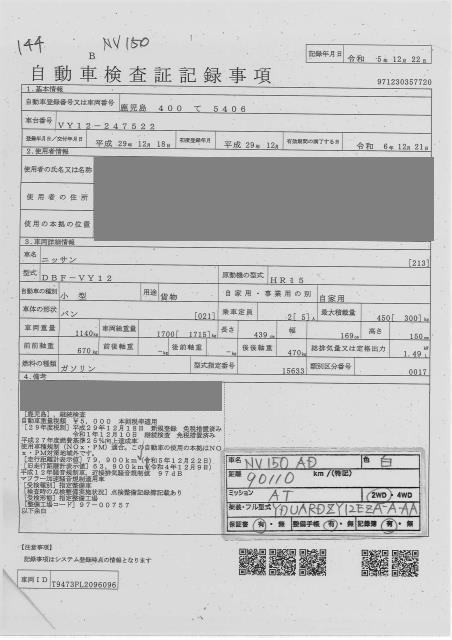 144
NV150
B
記録年月日 令和 5年 12月 22日
自動車検査証記録事項
971230357720
1.基本情報
自動車登録番号又は車両番号 鹿児島 400 て 5406
車台番号 VY12-247522
登録年月日/交付年月日 平成 29年 12月 18日 初度登録年月 平成 29年 12月 有効期間の満了する日 令和 6年 12月 21日
2.使用者情報
使用者の氏名又は名称
使用者の住所
使用の本拠の位置
3.車両詳細情報
車名 ニッサン [213]
型式 DBF-VY12 原動機の型式 HR15
自動車の種別 小型 用途 貨物 自家用・事業用の別 自家用
車体の形状 バン [021] 乗車定員 2[ 5]人 最大積載量 450[ 300]kg
車両重量 1140kg 車両総重量 1700[ 1715]kg 長さ 439cm 幅 169cm 高さ 150cm
前前軸重 670kg 前後軸重 -kg 後前軸重 -kg 後後軸重 470kg 総排気量又は定格出力 1.49L
燃料の種類 ガソリン 型式指定番号 15633 類別区分番号 0017
4.備考
[鹿児島],継続検査
自動車重量税額 ¥5,000 本則税率適用
[29年度税制]平成29年12月18日 新規登録 免税措置済み
令和1年12月10日 継続検査 免税措置済み
平成27年度燃費基準25%向上達成車
使用車種規制(NOx・PM)適合。この自動車の使用の本拠はNO
x・PM対策地域外です。
[走行距離計表示値]79,900km(令和5年12月22日)
[旧走行距離計表示値]63,900km(令和4年12月9日)
平成12年騒音規制車、近接排気騒音規制値 97dB
マフラー加速騒音規制適用車
[受検種別]指定整備車
[検査時の点検整備実施状況]点検整備記録簿記載あり
[受検形態]指定整備工場
[整備工場コード]97-00757
以下余白
車名 NV150 AD 色 白
距離 90110 km/(特記)
ミッション AT 2WD・4WD
架装・フル型式 YDUARDZY12EZA-A-AA
保証書 有・無 整備手帳 有・無 記録簿 有・無
【注意事項】
記録事項はシステム登録時点の情報となります
車両ID T9473PL2096096